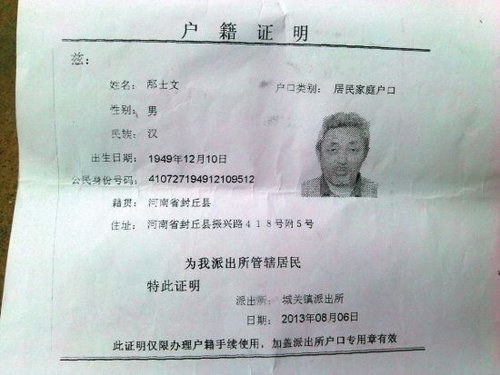 户籍证明
兹:
姓名: 邢士文 户口类别: 居民家庭户口
性别: 男
民族: 汉
出生日期: 1949年12月10日
公民身份号码: 410727194912109512
籍贯: 河南省封丘县
住址: 河南省封丘县振兴路418号附5号
为我派出所管辖居民
特此证明
派出所: 城关镇派出所
日期: 2013年08月06日
此证明仅限办理户籍手续使用,加盖派出所户口专用章有效